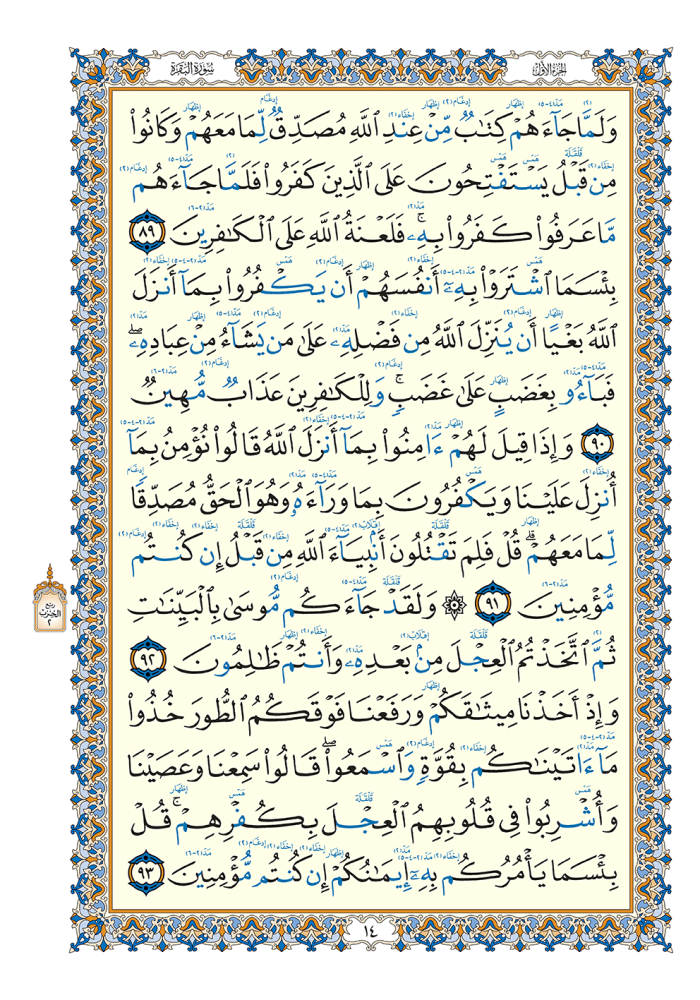 سُورَةُ البَقَرَة
الجُزءُ الأوّل
وَلَمَّا جَآءَهُمْ كِتَٰبٌ مِّنْ عِندِ ٱللَّهِ مُصَدِّقٌ لِّمَا مَعَهُمْ وَكَانُوا۟
مِن قَبْلُ يَسْتَفْتِحُونَ عَلَى ٱلَّذِينَ كَفَرُوا۟ فَلَمَّا جَآءَهُم
مَّا عَرَفُوا۟ كَفَرُوا۟ بِهِۦ ۚ فَلَعْنَةُ ٱللَّهِ عَلَى ٱلْكَٰفِرِينَ ٨٩
بِئْسَمَا ٱشْتَرَوْا۟ بِهِۦٓ أَنفُسَهُمْ أَن يَكْفُرُوا۟ بِمَآ أَنزَلَ
ٱللَّهُ بَغْيًا أَن يُنَزِّلَ ٱللَّهُ مِن فَضْلِهِۦ عَلَىٰ مَن يَشَآءُ مِنْ عِبَادِهِۦ ۖ
فَبَآءُو بِغَضَبٍ عَلَىٰ غَضَبٍ ۚ وَلِلْكَٰفِرِينَ عَذَابٌ مُّهِينٌ
٩٠ وَإِذَا قِيلَ لَهُمْ ءَامِنُوا۟ بِمَآ أَنزَلَ ٱللَّهُ قَالُوا۟ نُؤْمِنُ بِمَآ
أُنزِلَ عَلَيْنَا وَيَكْفُرُونَ بِمَا وَرَآءَهُۥ وَهُوَ ٱلْحَقُّ مُصَدِّقًا
لِّمَا مَعَهُمْ ۗ قُلْ فَلِمَ تَقْتُلُونَ أَنۢبِيَآءَ ٱللَّهِ مِن قَبْلُ إِن كُنتُم
مُّؤْمِنِينَ ٩١ ۞ وَلَقَدْ جَآءَكُم مُّوسَىٰ بِٱلْبَيِّنَٰتِ
ثُمَّ ٱتَّخَذْتُمُ ٱلْعِجْلَ مِنۢ بَعْدِهِۦ وَأَنتُمْ ظَٰلِمُونَ ٩٢
وَإِذْ أَخَذْنَا مِيثَٰقَكُمْ وَرَفَعْنَا فَوْقَكُمُ ٱلطُّورَ خُذُوا۟
مَآ ءَاتَيْنَٰكُم بِقُوَّةٍ وَٱسْمَعُوا۟ ۖ قَالُوا۟ سَمِعْنَا وَعَصَيْنَا
وَأُشْرِبُوا۟ فِى قُلُوبِهِمُ ٱلْعِجْلَ بِكُفْرِهِمْ ۚ قُلْ
بِئْسَمَا يَأْمُرُكُم بِهِۦٓ إِيمَٰنُكُمْ إِن كُنتُم مُّؤْمِنِينَ ٩٣
ربع
الحزب
٢
١٤